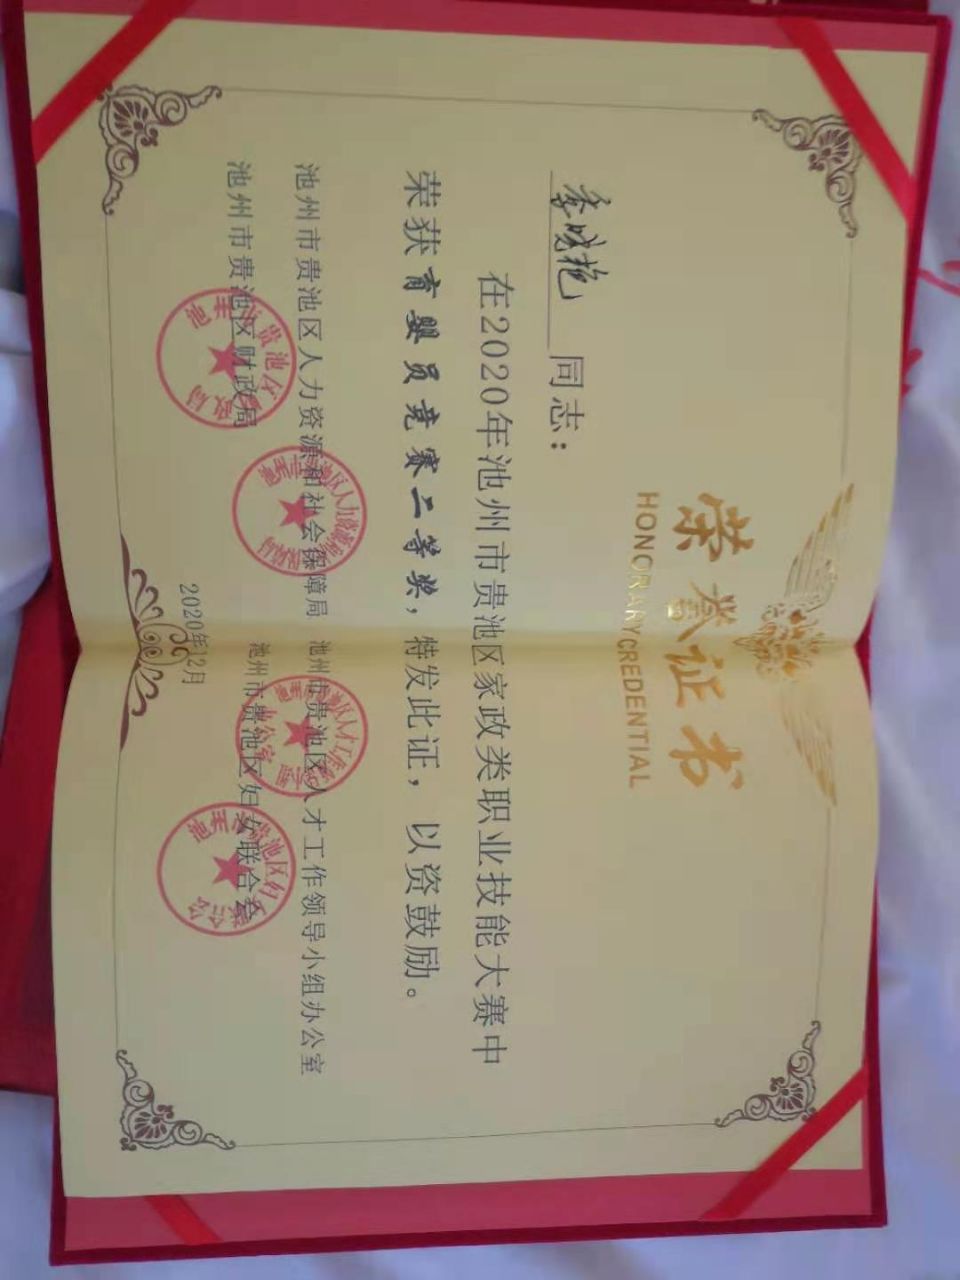 荣誉证书
HONORARY CREDENTIAL
季晓艳 同志：
在2020年池州市贵池区家政类职业技能大赛中
荣获育婴员竞赛二等奖，特发此证，以资鼓励。
池州市贵池区人力资源和社会保障局 池州市贵池区人才工作领导小组办公室
池州市贵池区财政局 池州市贵池区妇女联合会
2020年12月